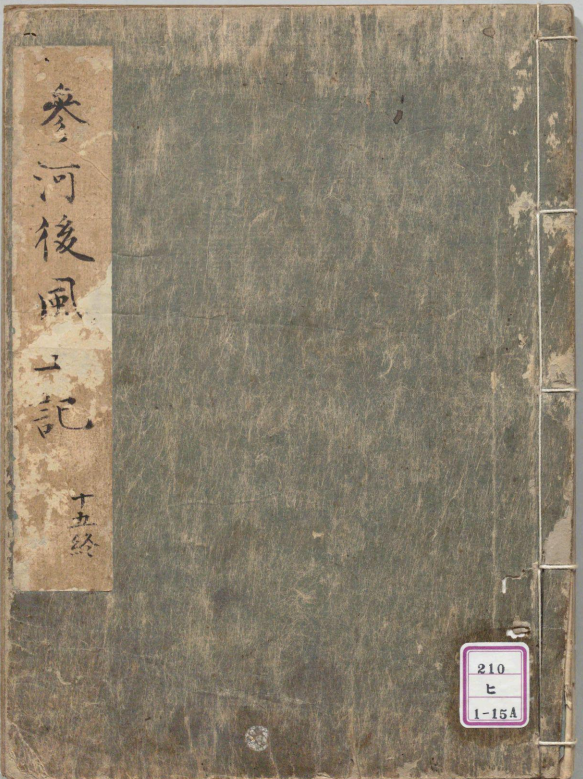 參河後風土記
十五終
210
ヒ
1-15A